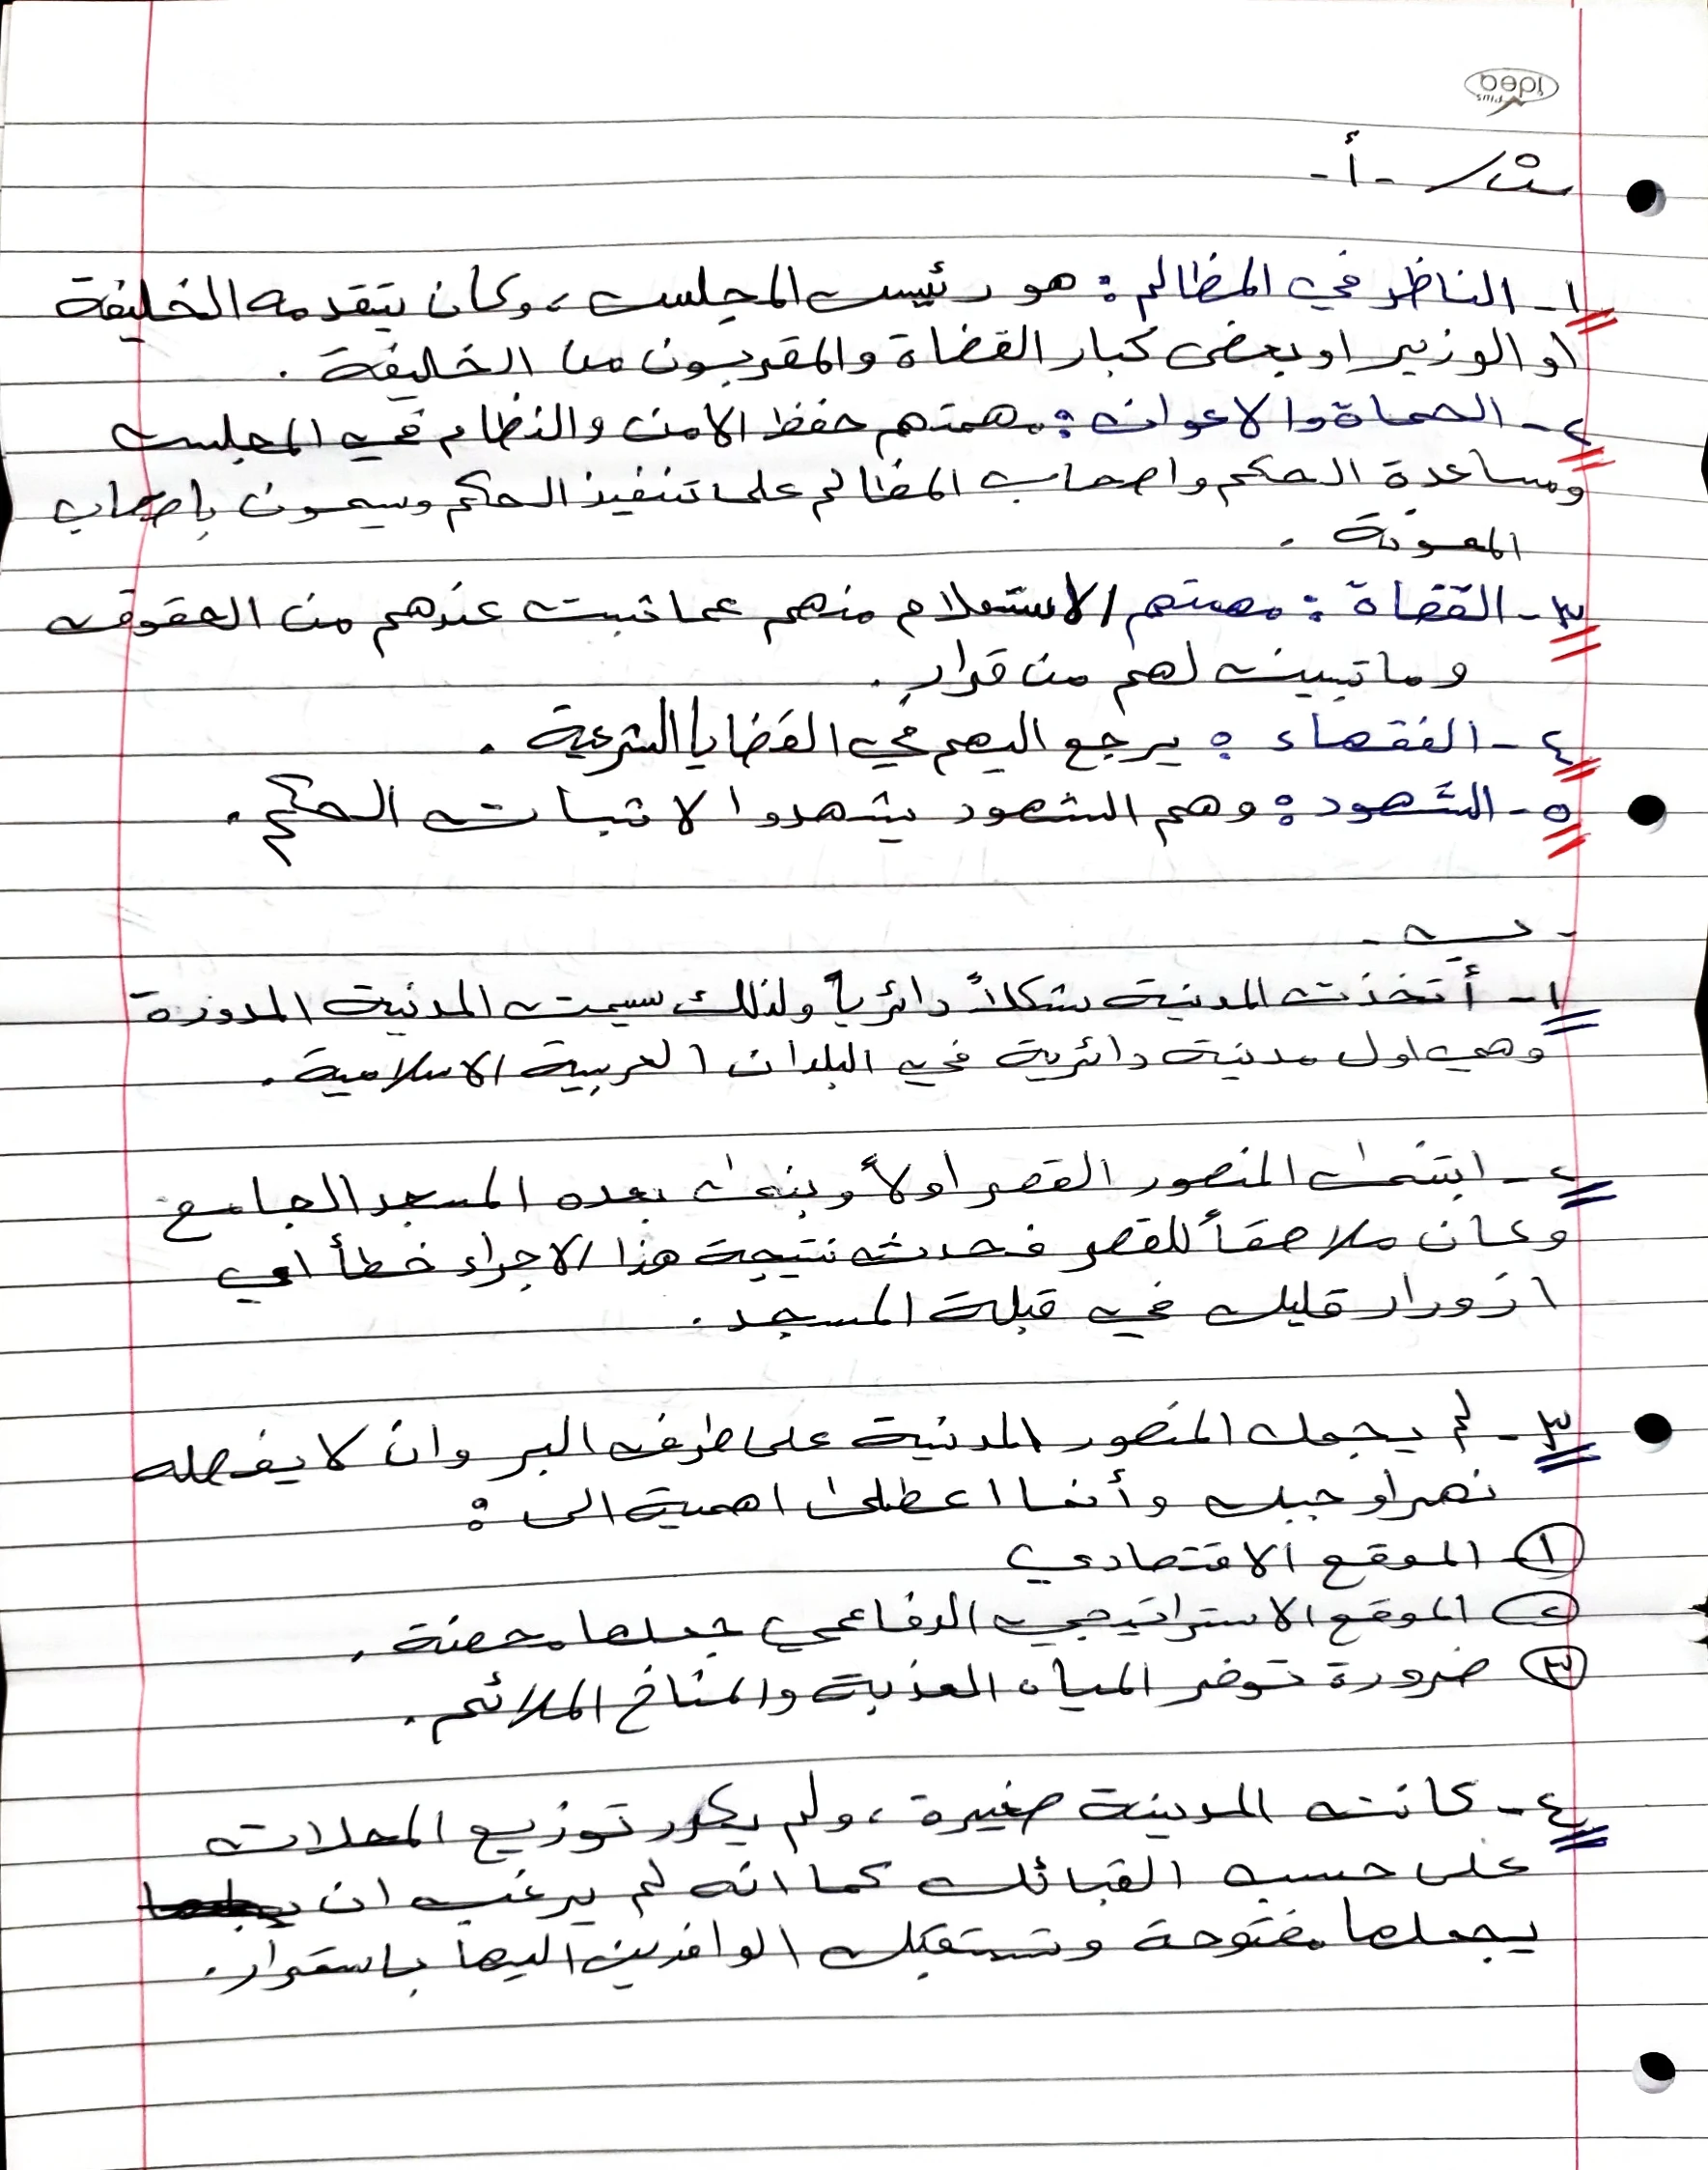 idea plus
س٣/ -أ-
١- الناظر في المظالم: هو رئيس المجلس، وكان يتقدمه الخليفة
او الوزير او بعض كبار القضاة والمقربون من الخليفة.
٢- الحماة والاعوان: مهمتهم حفظ الامن والنظام في المجلس
ومساعدة الحكم واصحاب المظالم على تنفيذ الحكم ويسمون باصحاب
المعونة.
٣- القضاة: مهمتهم الاستعلام منهم عما ثبت عندهم من الحقوق
وما تبين لهم من قرار.
٤- الفقهاء: يرجع اليهم في القضايا الشرعية.
٥- الشهود: وهم الشهود يشهدوا لاثبات الحكم.
- ب -
١- أتخذت المدينة شكلاً دائرياً ولذلك سميت المدينة المدورة
وهي اول مدينة دائرية في البلدان العربية الاسلامية.
٢- ابتنى المنصور القصر اولاً وبنى بعده المسجد الجامع
وكان ملاصقاً للقصر فحدث نتيجة هذا الاجراء خطأ اي
ازورار قليل في قبلة المسجد.
٣- لم يجعل المنصور المدينة على طرف البر وان لا يفصله
نهر او جبل وأنما اعطى اهمية الى:
١- الموقع الاقتصادي
٢- الموقع الاستراتيجي الدفاعي جعلها محصنة.
٣- ضرورة توفر المياه العذبة والمناخ الملائم.
٤- كانت المدينة صغيرة، ولم يكرر توزيع المحلات
على حسب القبائل كما انه لم يرغب ان
يجعلها مفتوحة وتستقبل الوافدين اليها باستمرار.